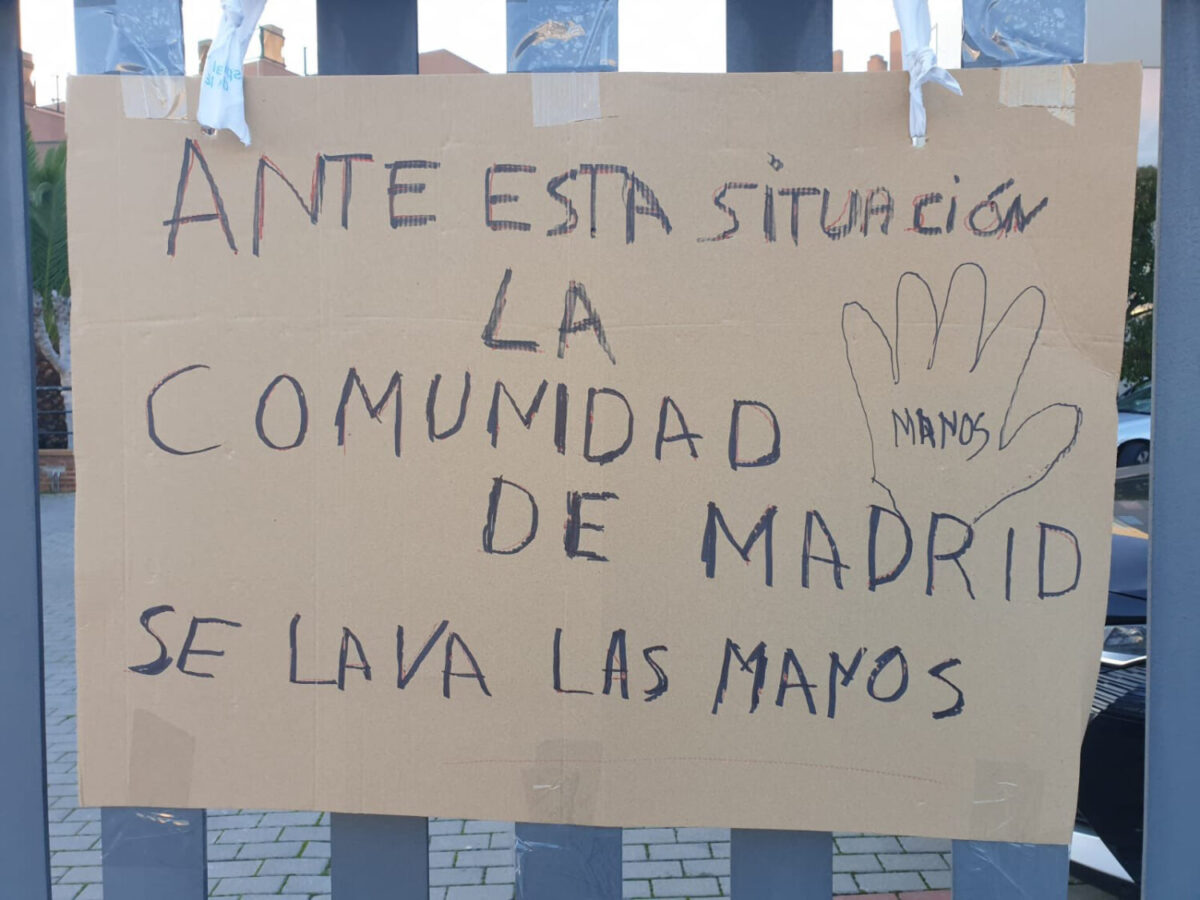 ANTE ESTA SITUACIÓN
LA
COMUNIDAD
MANOS
DE MADRID
SE LAVA LAS MANOS